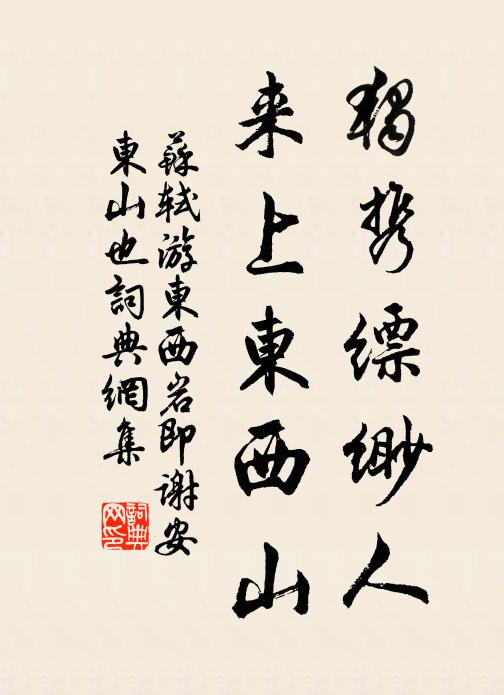 獨携縹緲人
来上東西山
蘇軾游東西岩即謝安
東山也詞典網集
詞典
网印